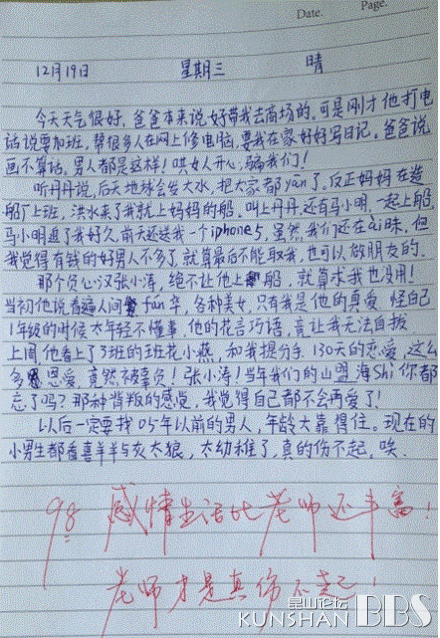 Date. Page.
12月19日 星期三 晴
今天天气很好,爸爸本来说好带我去商场的。可是刚才他打电
话说要加班,帮很多人在网上修电脑,要我在家好好写日记。爸爸说
画不算话。男人都是这样!哄女人开心,骗我们!
听丹丹说,后天地球会发大水,把大家都yān了。反正妈妈在造
船厂上班,洪水来了我就上妈妈的船。叫上丹丹,还有马小明,一起上船,
马小明追了我好久,前天还送我一个iphone5,虽然我们还在ài昧,但
我觉得有钱的好男人不多了,就算最后不能取我,也可以做朋友的。
那个负心汉张小涛,绝不让他上船,就算求我也没用!
当初他说看遍人间fán华,各种美女,只有我是他的真爱,怪自己
1年级的时候太年轻不懂事,他的花言巧语,竟让我无法自拔
上周他看上了3班的班花小燕,和我提分手,130天的恋爱,这么
多恩爱,竟然被辜负!张小涛!当年我们的山盟海Shì你都
忘了吗?那种背叛的感觉,我觉得自己都不会再爱了!
以后一定要找05年以前的男人,年龄大靠得住。现在的
小男生都看喜羊羊与灰太狼,太幼稚了,真的伤不起,唉.
98 感情生活比老师还丰富!
老师才是真伤不起!
昆山论坛
KUNSHAN BBS